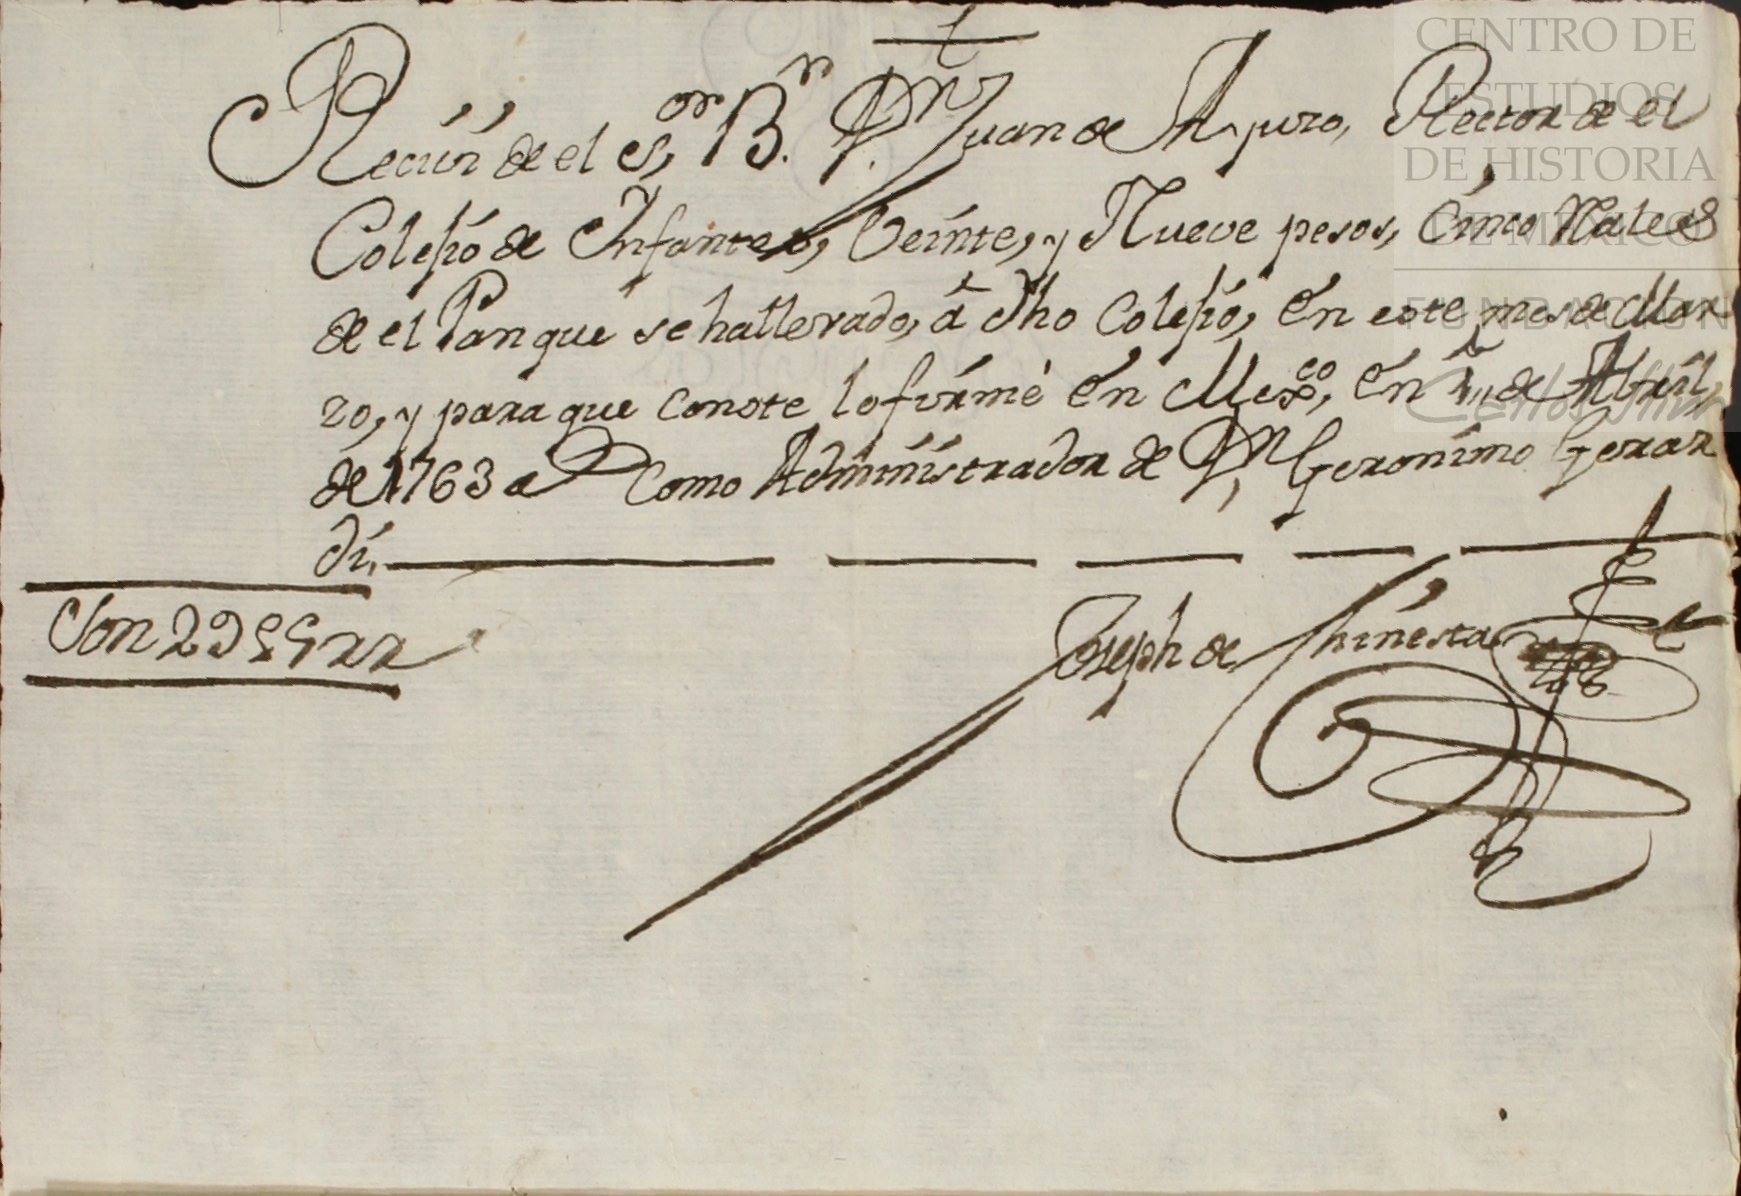 Recivi de el S.or B.n D.n Juan de Aguro, Rector de el
Colegio de Infantes, Veinte, y Nueve pesos, Cinco Rales
de el Pan que se hallevado, â dho Colegio, en este mes de Mar
zo, y para que conste lo firmè en Mex.co, en 1 de Abril,
de 1763 a.s Como Administrador de D.n Geronimo Gerar
di.
Son 29 ps 5 rr
Joseph de Chinesta
CENTRO DE
ESTUDIOS
DE HISTORIA
DE MÉXICO
FUNDACIÓN
Carlos Slim